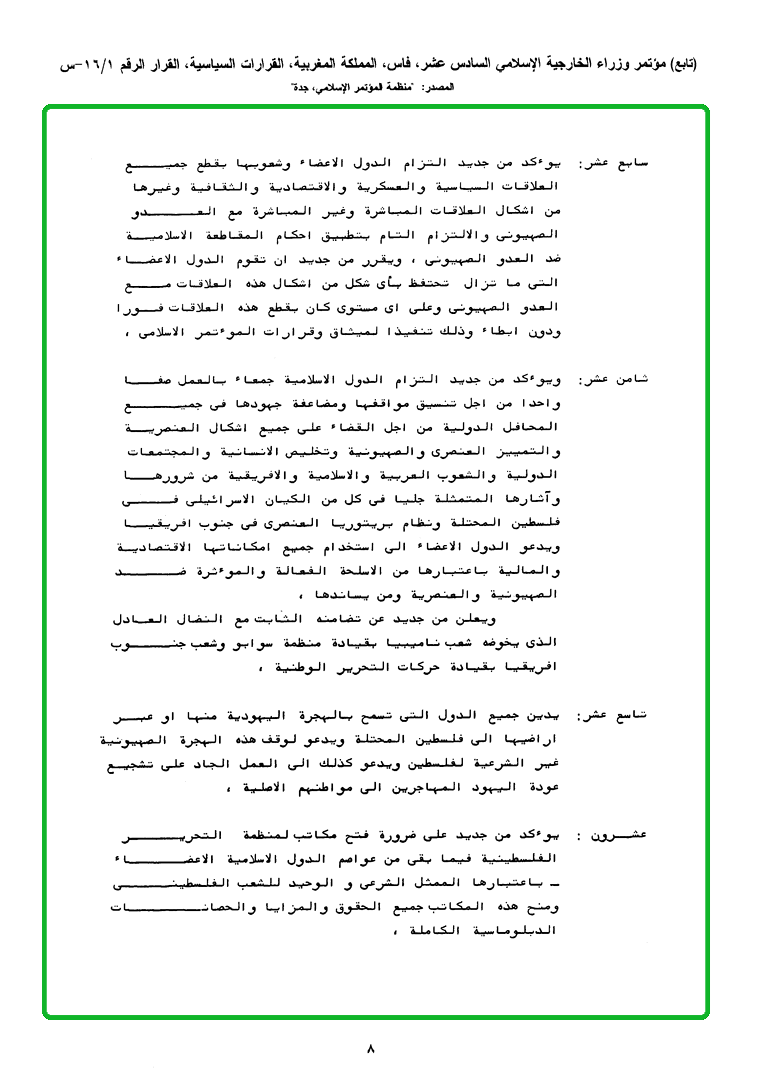 (تابع) مؤتمر وزراء الخارجية الإسلامي السادس عشر، فاس، المملكة المغربية، القرارات السياسية، القرار الرقم ١٦/١-س
المصدر: "منظمة المؤتمر الإسلامي، جدة"
سابع عشر: يوءكد من جديد التزام الدول الاعضاء وشعوبها بقطع جميع
العلاقات السياسية والعسكرية والاقتصادية والثقافية وغيرها
من اشكال العلاقات المباشرة وغير المباشرة مع العدو
الصهيونى والالتزام التام بتطبيق احكام المقاطعة الاسلامية
ضد العدو الصهيونى ، ويقرر من جديد ان تقوم الدول الاعضاء
التى ما تزال تحتفظ بأى شكل من اشكال هذه العلاقات مع
العدو الصهيونى وعلى اى مستوى كان بقطع هذه العلاقات فورا
ودون ابطاء وذلك تنفيذا لميثاق وقرارات الموءتمر الاسلامى ،
ثامن عشر: ويوءكد من جديد التزام الدول الاسلامية جمعاء بالعمل صفا
واحدا من اجل تنسيق مواقفها ومضاعفة جهودها فى جميع
المحافل الدولية من اجل القضاء على جميع اشكال العنصرية
والتمييز العنصرى والصهيونية وتخليص الانسانية والمجتمعات
الدولية والشعوب العربية والاسلامية والافريقية من شرورها
وآشارها المتمثلة جليا فى كل من الكيان الاسرائيلى فى
فلسطين المحتلة ونظام بريتوريا العنصرى فى جنوب افريقيا
ويدعو الدول الاعضاء الى استخدام جميع امكاناتها الاقتصادية
والمالية باعتبارها من الاسلحة الفعالة والموءثرة ضد
الصهيونية والعنصرية ومن يساندها ،
ويعلن من جديد عن تضامنه الثابت مع النضال العادل
الذى يخوضه شعب ناميبيا بقيادة منظمة سوابو وشعب جنوب
افريقيا بقيادة حركات التحرير الوطنية ،
تاسع عشر: يدين جميع الدول التى تسمح بالهجرة اليهودية منها او عبر
اراضيها الى فلسطين المحتلة ويدعو لوقف هذه الهجرة الصهيونية
غير الشرعية لفلسطين ويدعو كذلك الى العمل الجاد على تشجيع
عودة اليهود المهاجرين الى مواطنهم الاصلية ،
عشرون : يوءكد من جديد على ضرورة فتح مكاتب لمنظمة التحرير
الفلسطينية فيما بقى من عواصم الدول الاسلامية الاعضاء
ـ باعتبارها الممثل الشرعى و الوحيد للشعب الفلسطينى
ومنح هذه المكاتب جميع الحقوق والمزايا والحصانات
الدبلوماسية الكاملة ،
٨